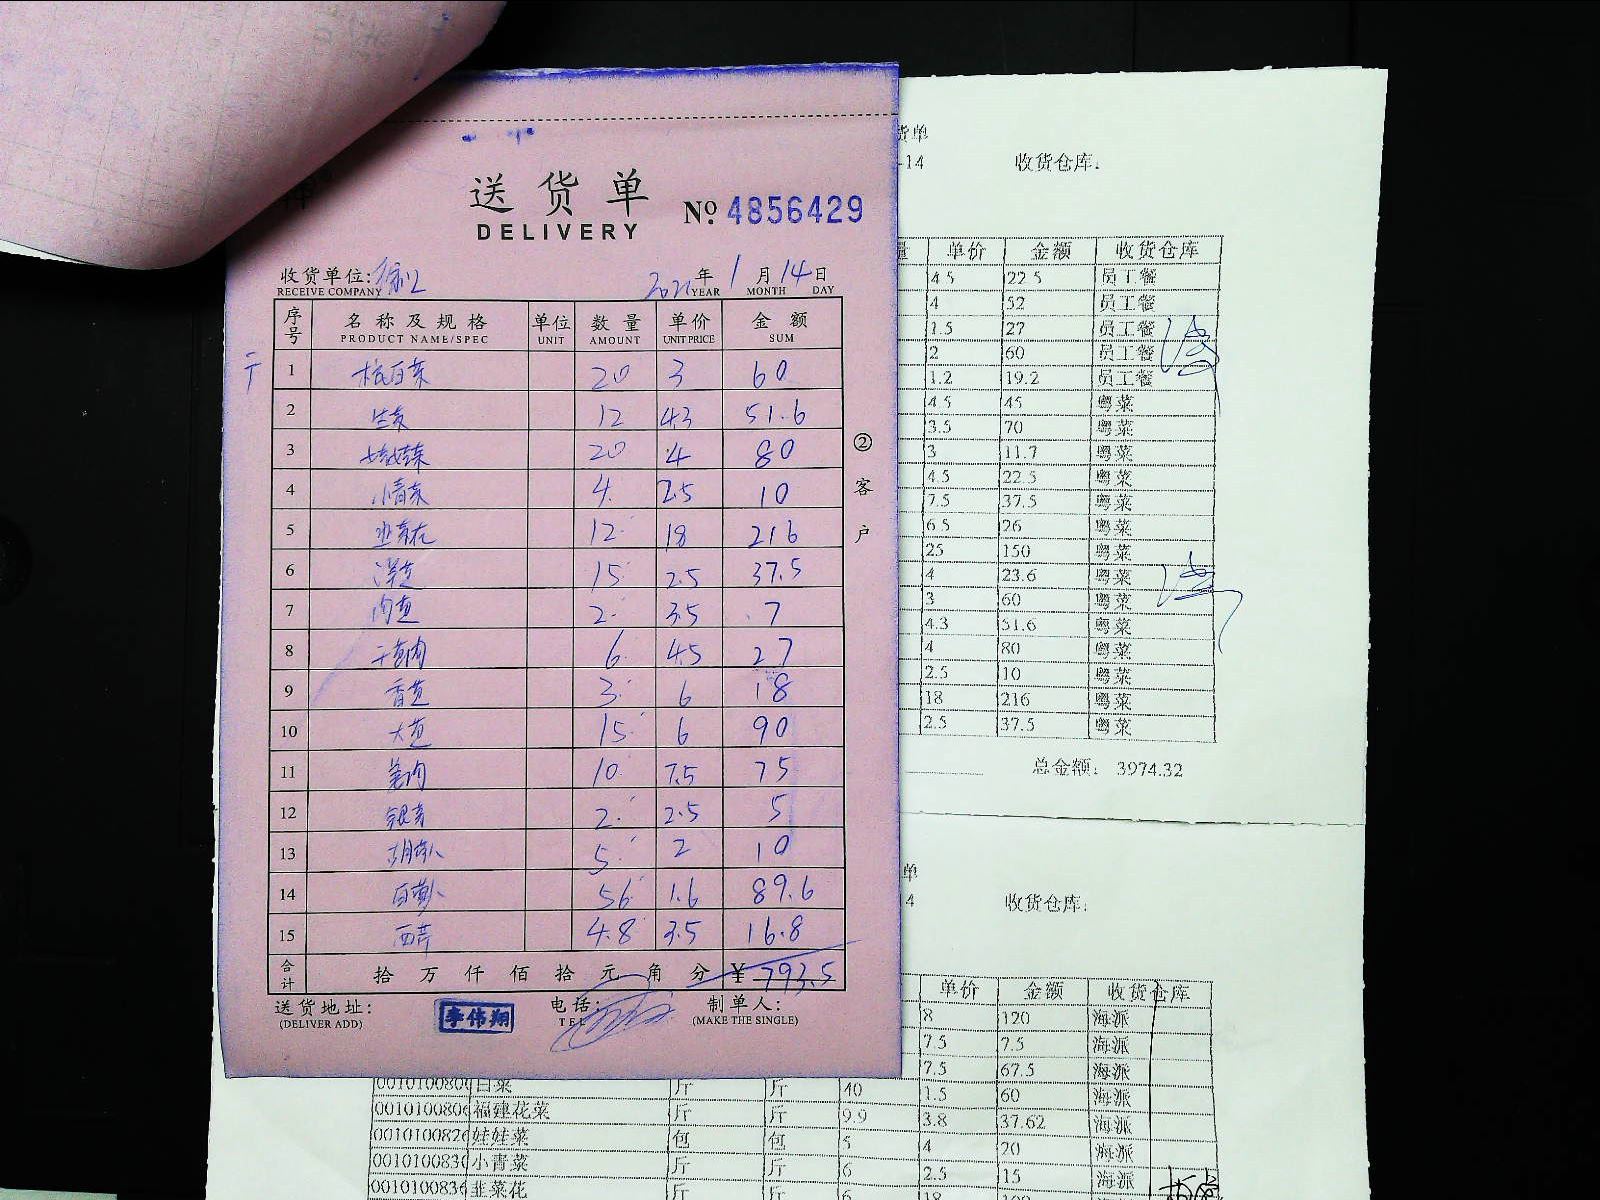 送货单
DELIVERY
№ 4856429
收货单位:
RECEIVE COMPANY
2021年 1月 14日
YEAR MONTH DAY
序号 名称及规格 单位 数量 单价 金额
PRODUCT NAME/SPEC UNIT AMOUNT UNIT PRICE SUM
1 杭白菜 20 3 60
2 生菜 12 4.3 51.6
3 娃娃菜 20 4 80
4 小青菜 4 2.5 10
5 韭菜花 12 18 216
6 洋芋 15 2.5 37.5
7 2 3.5 7
8 6 4.5 27
9 香 3 6 18
10 大 15 6 90
11 姜肉 10 7.5 75
12 银芽 2 2.5 5
13 胡萝卜 5 2 10
14 白萝卜 56 1.6 89.6
15 西芹 4.8 3.5 16.8
合计 拾万仟佰拾元角分 ¥ 793.5
送货地址:
(DELIVER ADD)
李伟翔
电话:
TEL
制单人:
(MAKE THE SINGLE)
②客户
货单
-14 收货仓库:
量 单价 金额 收货仓库
4.5 22.5 员工餐
4 52 员工餐
1.5 27 员工餐
2 60 员工餐
1.2 19.2 员工餐
4.5 45 粤菜
3.5 70 粤菜
3 11.7 粤菜
4.5 22.5 粤菜
7.5 37.5 粤菜
6.5 26 粤菜
25 150 粤菜
4 23.6 粤菜
3 60 粤菜
4.3 51.6 粤菜
4 80 粤菜
2.5 10 粤菜
18 216 粤菜
2.5 37.5 粤菜
总金额: 3974.32
单
4 收货仓库:
单价 金额 收货仓库
8 120 海派
7.5 7.5 海派
7.5 67.5 海派
0010100806 白菜 斤 斤 40 1.5 60 海派
0010100806 福建花菜 斤 斤 9.9 3.8 37.62 海派
0010100826 娃娃菜 包 包 5 4 20 海派
0010100830 小青菜 斤 斤 6 2.5 15 海派
0010100836 韭菜花 斤 斤 6 18